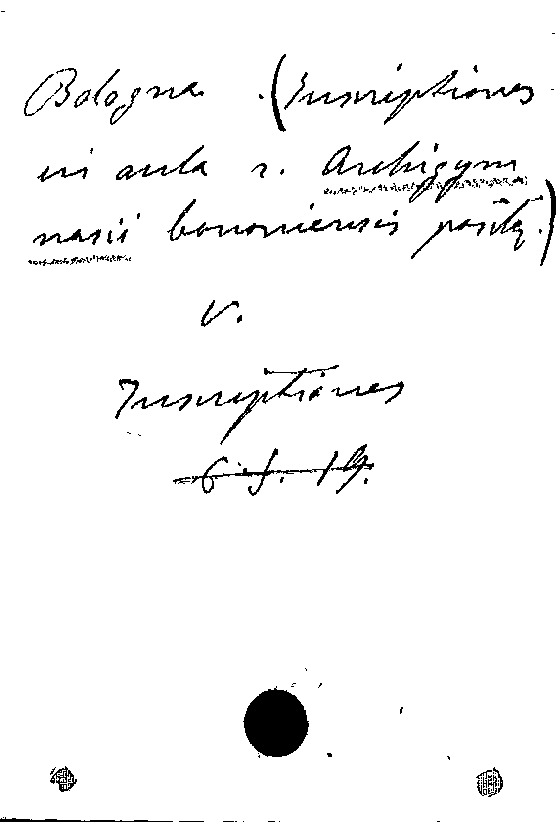 Bologna. (Inscriptiones
in aula r. Archigym
nasii bononiensis positę.)
v.
Inscriptiones
6. J. 19.